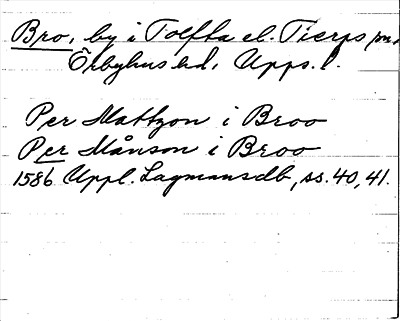 Bro, by i Tolfta el. Tierps sn.
Örbyhus hd, Upps. l.
Per Mattzon i Broo
Per Månson i Broo
1586 Uppl. Lagmansdb, ss. 40, 41.